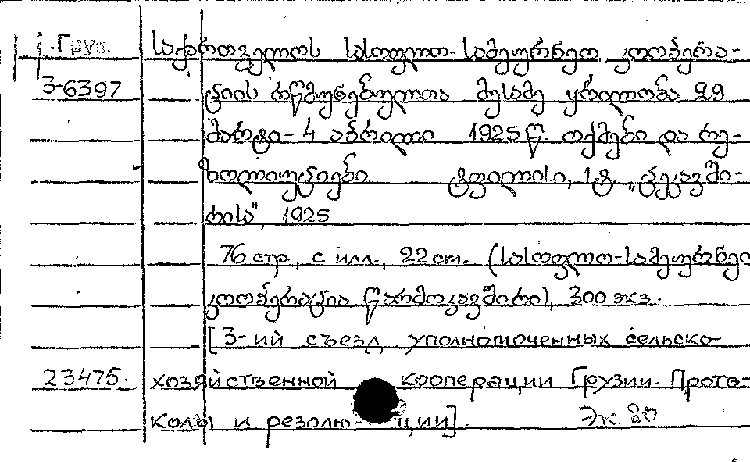 Груз. საქართველოს სასოფლო-სამეურნეო კოოპერა-
3-6397 ციის რწმუნებულთა მესამე ყრილობა 29
მარტი-4 აპრილი 1925 წ. ოქმები და რე-
ზოლიუციები ტფილისი, 1 ტ. „ტეკავში-
რის", 1925
76 стр., с илл., 22 см. (სასოფლო-სამეურნეო
კოოპერაცია წარმოკავშირი), 300 экз.
[3-ий съезд уполномоченных сельско-
23475. хозяйственной кооперации Грузии. Прото-
колы и резолюции]. Эк. 80